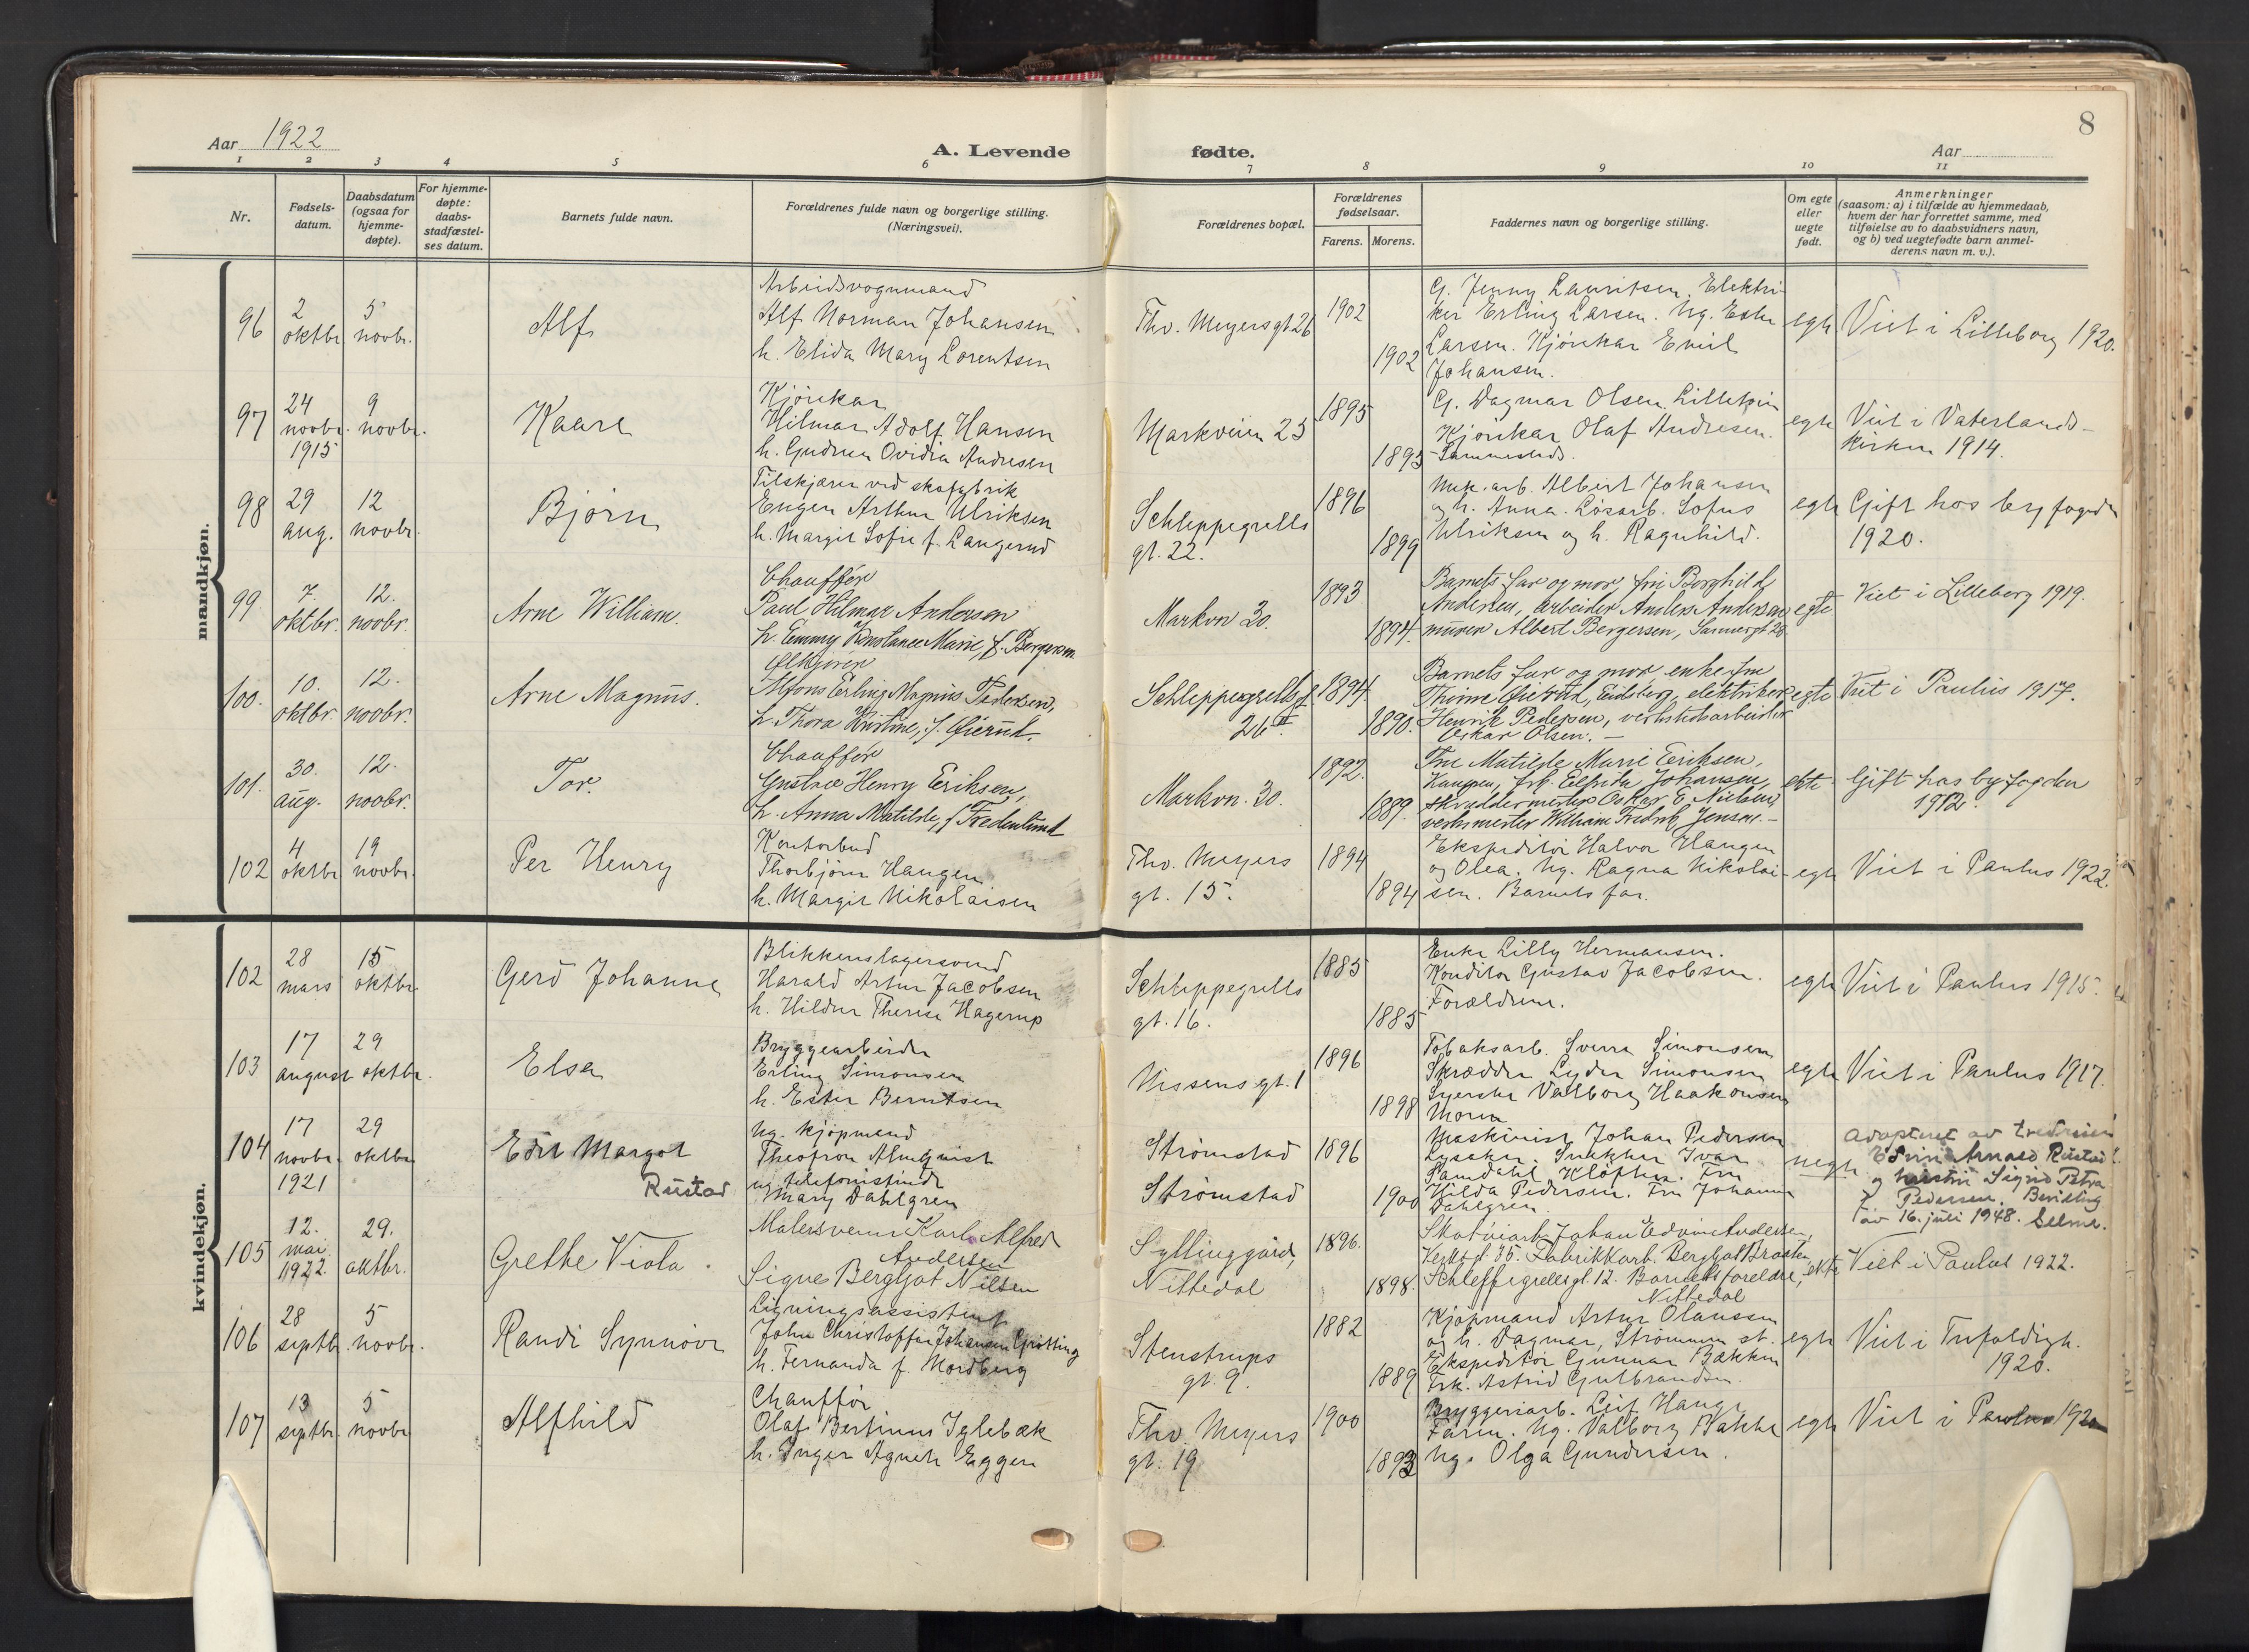 8
Aar 1922
A. Levende fødte.
Aar
1 2 3 4 5 6 7 8 9 10 11
Nr.
Fødsels-
datum.
Daabsdatum
(ogsaa for
hjemme-
døpte).
For hjemme-
døpte:
daabs-
stadfæstel-
ses datum.
Barnets fulde navn.
Forældrenes fulde navn og borgerlige stilling.
(Næringsvei).
Forældrenes bopæl.
Forældrenes
fødselsaar.
Farens. Morens.
Faddernes navn og borgerlige stilling.
Om egte
eller
uegte
født.
Anmerkninger
(saasom: a) i tilfælde av hjemmedaab,
hvem der har forrettet samme, med
tilføielse av to daabsvidners navn,
og b) ved uegtefødte barn anmel-
derens navn m. v.).
mandkjøn.
96
2
oktbr
5
novbr.
Alf
Arbeidsvognmand
Alf Norman Johansen
h. Elida Mary Lorentsen
Thv. Meyersgt. 26
1902
1902
G. Jenny Lauritsen. Elektri-
ker Erling Larsen. Ug. Ester
Larsen. Kjørekar Emil
Johansen.
egte
Viet i Lilleborg 1920.
97
24
novbr.
1915
9
novbr.
Kaare
Kjørekar
Hilmar Adolf Hansen
h. Gudrun Ovidia Andresen
Markveien 23
1895
1895
G. Dagmar Olsen.
Kjørekar Olaf Andresen.
Sammesteds.
egte
Viet i Vaterlands-
kirken 1914.
98
29
aug.
12
novbr.
Bjørn
Tilskjærer ved skofabrik
Eugen Arthur Ulriksen
h. Margit Sofie f. Langerud
Schleppegrells
gt. 22.
1896
1899
Mek. arb. Albert Johansen
og h. Anna. Løsarb. Sofus
Ulriksen og h. Ragnhild.
egte
Gift hos byfogden
1920.
99.
7.
oktbr.
12.
novbr.
Arne William.
Chauffør
Paul Hilmar Andersen
h. Emmy Konstance Marie, f. Bergersen
Markvn 30.
1893
1894.
Barnets far og mor, fru Borghild
Andersen, arbeider Anders Andersen
murer Albert Bergersen, Sannergt 28
egte
Viet i Lilleborg 1919.
100.
10.
oktbr.
12.
novbr.
Arne Magnus.
Alfons Erling Magnus Pedersen,
h. Thora Kristine, f. Øierud.
Schleppegrellsgt
26 II.
1894.
1890.
Barnets far og mor, enkefru
Thrine Øierud, Eidsberg, elektriker
Henrik Pedersen, verkstedsarbeider
Oskar Olsen. —
egte
Viet i Paulus 1917.
101.
30.
aug.
12.
novbr.
Tor.
Chauffør
Gustav Henry Eriksen,
h. Anna Matilde, f. Fredenlund
Markvn. 30.
1892.
1889.
Fru Matilde Marie Eriksen,
frk. Elfrida Johansen,
skreddermester Oskar E. Nielsen,
verksmester William Fredrik Jensen. —
ekte
Gift hos byfogden
1912.
102
4
oktbr
19
novbr.
Per Henry
Kontorbud
Thorbjørn Haugen
h. Margit Nikolaisen
Thv. Meyers
gt. 15.
1894
1894
Ekspeditør Halvor Haugen
og Olea. Ug. Ragna Nikolai-
sen. Barnets far.
egte
Viet i Paulus 1922.
kvindekjøn.
102
28
mars
15
oktbr.
Gerd Johanne
Blikkenslagersvend
Harald Artur Jacobsen
h. Hildur Therese Hagerup
Schleppegrells
gt. 16.
1885
1885
Enke Lilly Hermansen.
Konditor Gustav Jacobsen.
Forældrene.
egte
Viet i Paulus 1915.
103
17
august
29
oktbr.
Elsa
Bryggearbeider
Erling Simonsen
h. Ester Berntsen
Nissensgt. 1
1896
1898
Tobaksarb. Sverre Simonsen
Skrædder Lyder Simonsen
Syerske Valborg Haakonsen
Moren
egte
Viet i Paulus 1917.
104
17
novbr.
1921
29
oktbr.
Edit Margot
Rustad
Ug. kjøpmand
Theofron Almquist
ug telefonistinde
Mary Dahlgren
Strømstad
Strømstad
1896
1900
Maskinist Johan Pedersen
Lysaker. Snekker Ivar
Kløften. Fru
Hilda Pedersen. Fru Johanne
Dahlgren
uegte
Adoptert av tredreier
Edvin Arnold Rustad
og hustru Sigrid Petra
Pedersen. Bevilling
av 16. juli 1948. Selme.
105
12.
mai
1922.
29.
oktbr.
Grethe Viola.
Malersvenn Karl Alfred
Andersen
Signe Bergljot Nilsen
Syllinggård,
Nittedal
1896.
1898.
Skotøiarb. Johan Edvin Andersen,
35. Fabrikkarb. Bergljot Braaten
Schleppegrellsgt. 12. Barnets foreldre,
Nittedal
ekte
Viet i Paulus 1922.
106
28
septbr.
5
novbr.
Randi Synnøve
Ligningsassistent
John Christoffer Johansen Grøtting
h. Fernanda f. Nordberg
Stenstrups
gt. 9.
1882
1889
Kjøpmand Artur Olaussen
og h. Dagmar, Strømmen st.
Ekspeditør Gunnar Bækken
Frk. Astrid Gulbrandsen.
egte
Viet i Trefoldigh.
1920.
107
13
septbr.
5
novbr
Alfhild
Chauffør
Olaf Bertinus Iglebæk
h. Inger Agnete Eggen
Thv. Meyers
gt. 19
1900
1893
Bryggeriarb. Leif Hauge
Faren. Ug. Valborg Bakke
Ug. Olga Gundersen.
egte
Viet i Paulus 1920